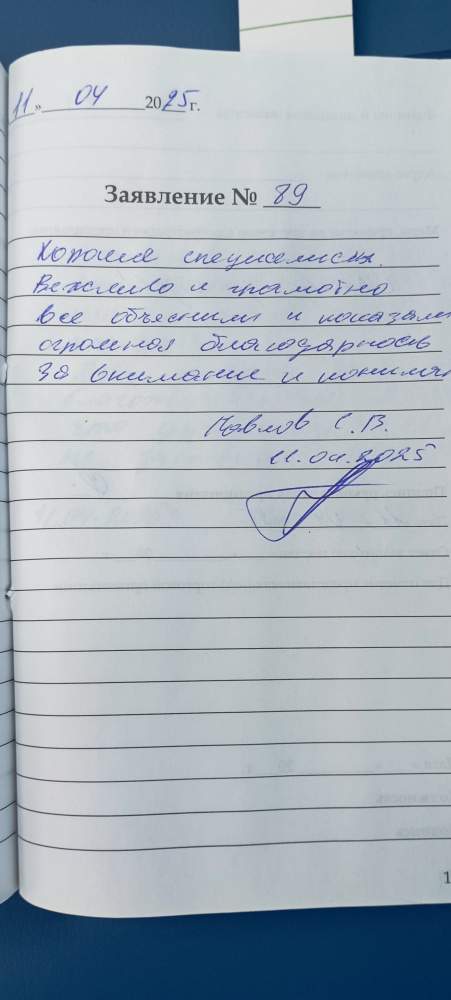 11 » 04 2025 г.
Заявление № 89
Хорошие специалисты.
Вежливо и грамотно
все объяснили и показали
огромная благодарность
за внимание и понима
Павлов С.В.
11.04.2025
1